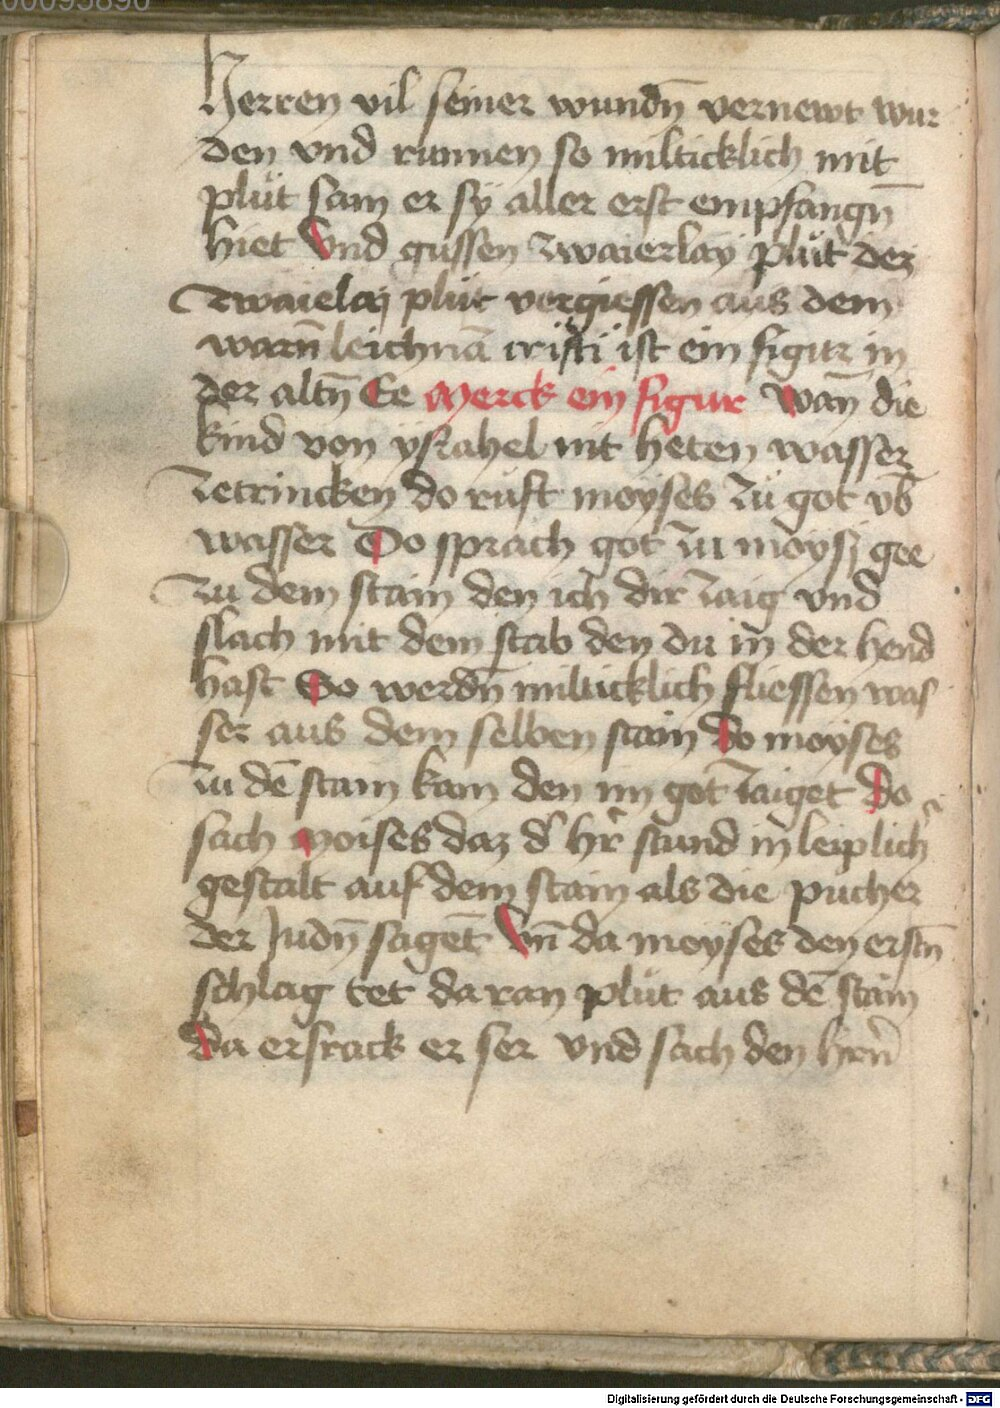 00095890
Herren vil seiner wundn̄ vernewt wur
den vnd runnen so milticklich mit
plüt sam er sÿ aller erst empfangn̄
hiet Vnd gussen zwaierlaÿ plüt der
zwaielaj plüt vergiessen aus dem
warn̄ leichnā cristi ist ein figur in
der altn̄ Ee Merck ein figur Wan̄ die
kind von ÿsrahel nit heten wasser
zetrincken do rüft moÿses zü got vb̄
wasser Do sprach got zu moÿsj gee
zu dem stain den ich dir zaig vnd
slach mit dem stab den du in der hend
hast So werdn̄ milticklich fliessen was
ser aus dem selben stain do moÿses
zu dē stain kam den im got zaiget Do
sach Moises daz d' hr̄ stund in leiplich'
gestalt auf dem stain als die pucher
der Judn̄ sagēt Vn̄ da moÿses den erstn̄
schlag tet da ran plüt aus dē stain
da ersrack er ser vnd sach den hrn̄
Digitalisierung gefördert durch die Deutsche Forschungsgemeinschaft - DFG